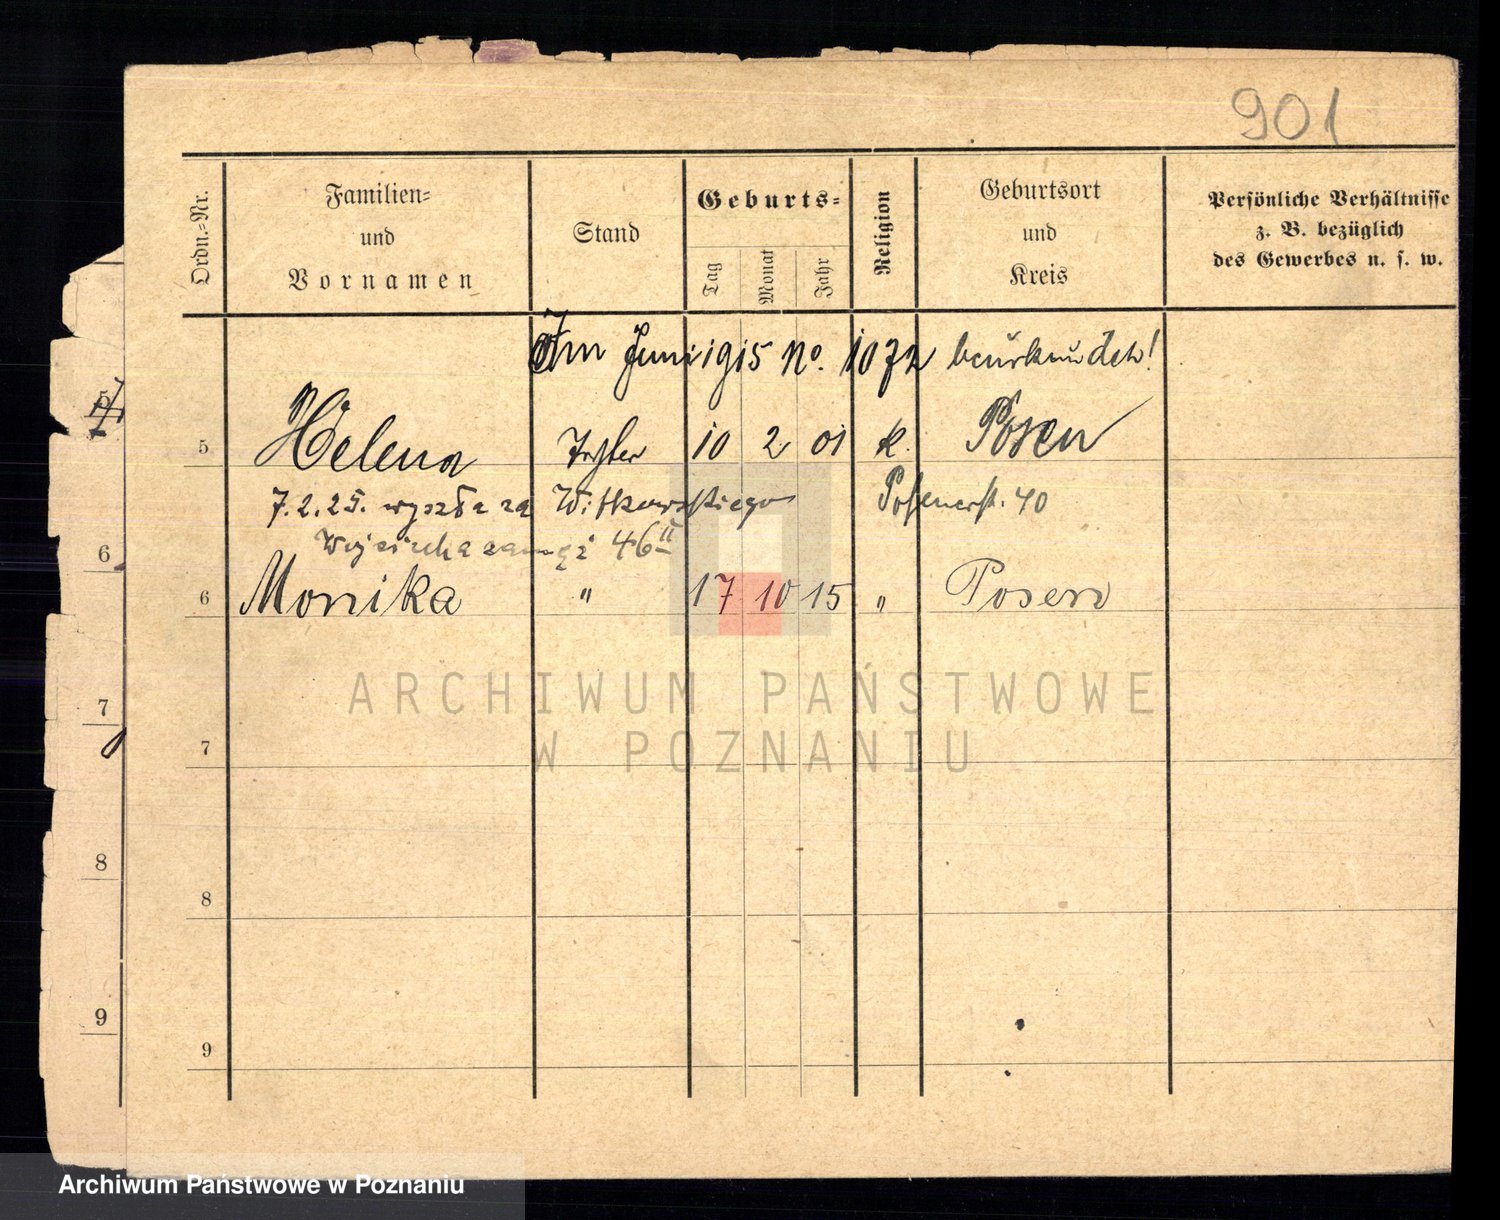 901
Ordn.-Nr.
Familien-
und
Vornamen
Stand
Geburts-
Tag
Monat
Jahr
Religion
Geburtsort
und
Kreis
Persönliche Verhältnisse
z. B. bezüglich
des Gewerbes u. s. w.
Im Juni 1915 No. 1072 beurkundet!
5 Helena 10 2 01 k. Posen
7.2.25. wyszła za Witkowskiego Posenerst. 40
Wojciecha 46 II
6 Monika " 17 10 15 " Posen
7
8
9
5
6
7
8
9
ARCHIWUM PAŃSTWOWE
W POZNANIU
Archiwum Państwowe w Poznaniu